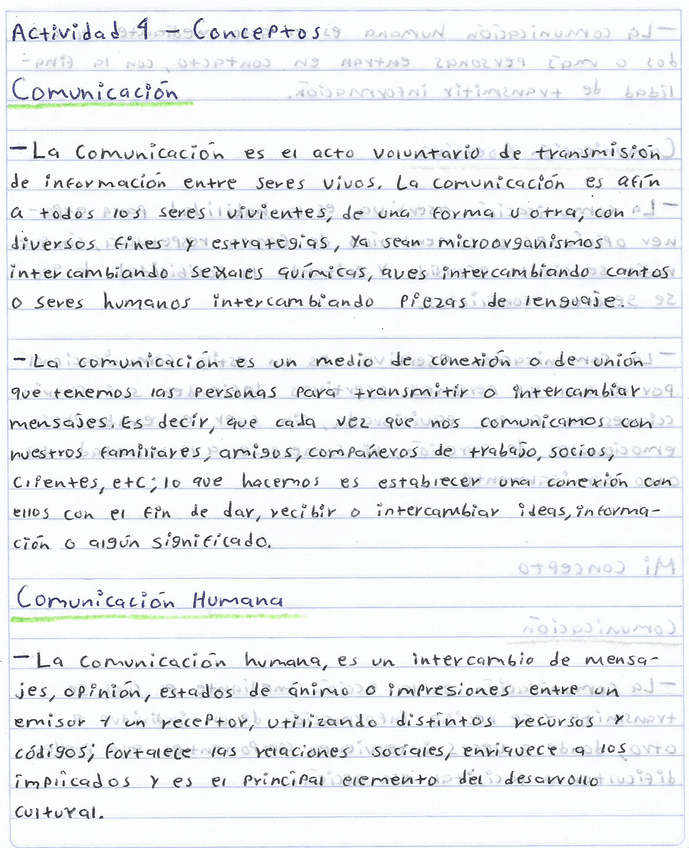 Actividad 4 - Conceptos
Comunicación
- La comunicación es el acto voluntario de transmisión
de información entre seres vivos. La comunicación es afín
a todos los seres vivientes, de una forma u otra, con
diversos fines y estrategias, ya sean microorganismos
intercambiando señales químicas, aves intercambiando cantos
o seres humanos intercambiando piezas de lenguaje.
- La comunicación es un medio de conexión o de unión
que tenemos las personas para transmitir o intercambiar
mensajes. Es decir, que cada vez que nos comunicamos con
nuestros familiares, amigos, compañeros de trabajo, socios,
clientes, etc; lo que hacemos es establecer una conexión con
ellos con el fin de dar, recibir o intercambiar ideas, informa-
ción o algún significado.
Comunicación Humana
- La comunicación humana, es un intercambio de mensa-
jes, opinión, estados de ánimo o impresiones entre un
emisor y un receptor, utilizando distintos recursos y
códigos; fortalece las relaciones sociales, enriquece a los
implicados y es el principal elemento del desarrollo
cultural.